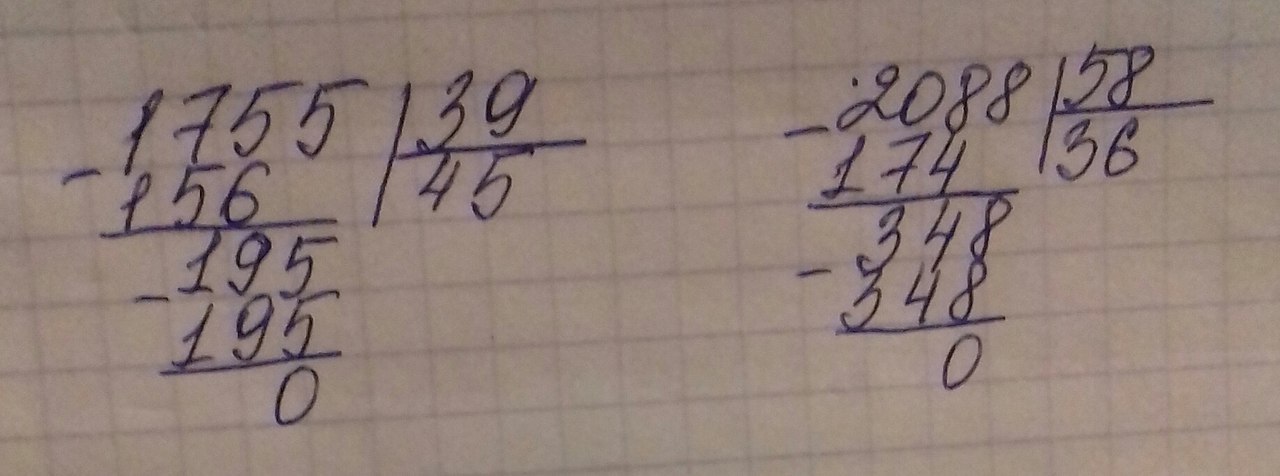 1755 | 39
- 156 | 45
195
- 195
0
2088 | 58
- 174 | 36
348
- 348
0